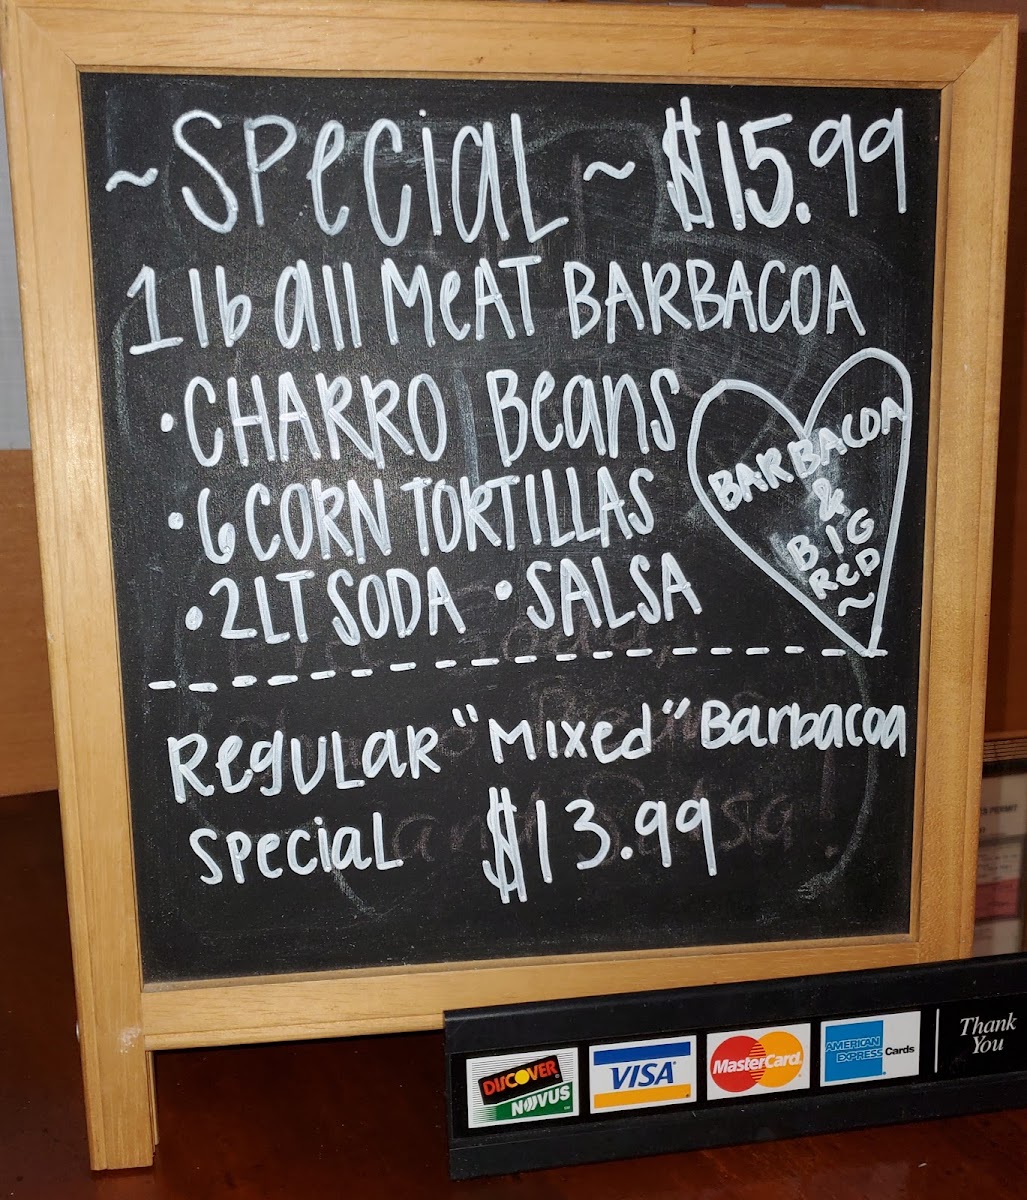 ~SPeciaL~ $15.99
1 lb all MeAT BARBACOA
• CHARRO Beans
• 6 CORN TORTILLAS
• 2LT SODA • SALSA
BARBACOA
&
BIG
ReD
~
ReguLaR "Mixed" Barbacoa
speciaL $13.99
DISCOVER
NOVUS
VISA
MasterCard
AMERICAN
EXPRESS Cards
Thank
You